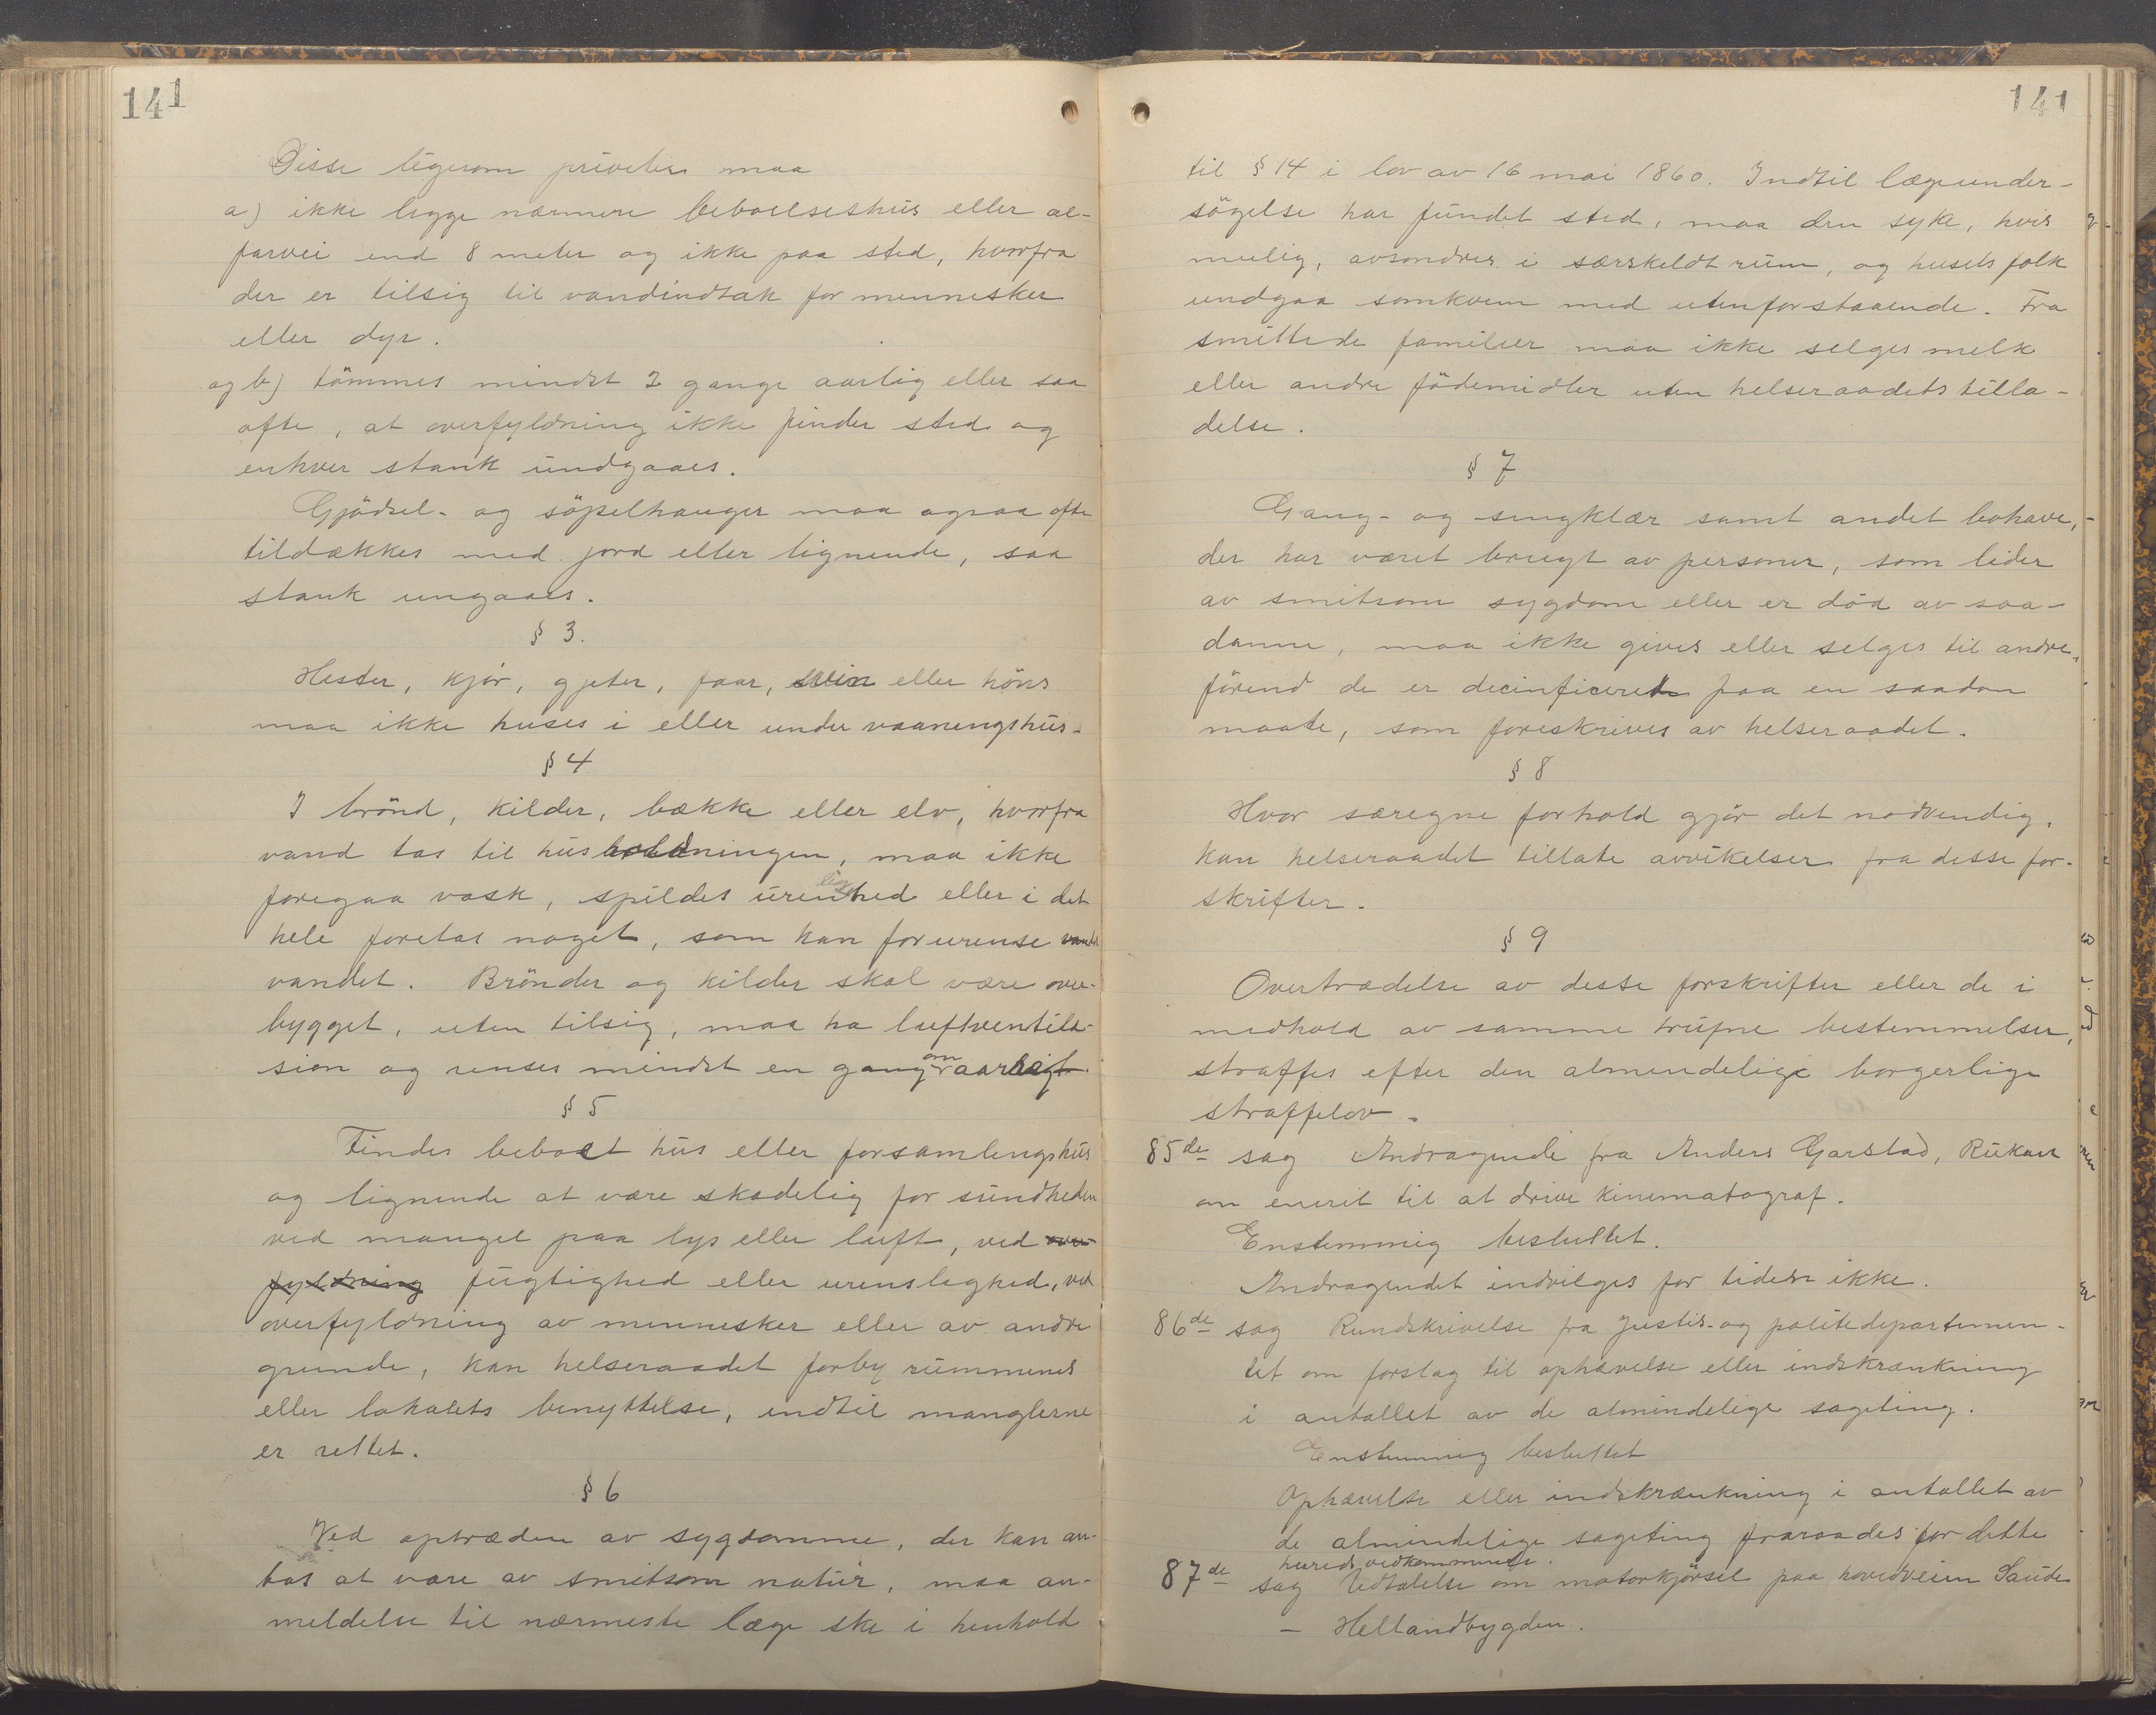 141
Disse ligesom priveter maa
a) ikke ligge nærmere beboelseshus eller al-
farvei end 8 meter og ikke paa sted, hvorfra
der er tilsig til vandindtak for mennesker
eller dyr.
og b) tömmes mindst 2 gange aarlig eller saa
ofte, at overfyldning ikke finder sted og
enhver stank undgaaes.
Gjödsel- og söpelhauger maa ogsaa ofte
tildækkes med jord eller lignende, saa
stank ungaaes.
§ 3.
Hester, kjör, gjeter, faar, svin eller höns
maa ikke huses i eller under vaaningshus.
§ 4
I brönd, kilder, bække eller elv, hvorfra
vand tas til husholdningen, maa ikke
foregaa vask, spildes urenslighed eller i det
hele foretas noget, som kan forurense
vandet. Brönder og kilder skal være over-
bygget, uten tilsig, maa ha luftventila-
sion og renses mindst en gang om aaret.
§ 5
Findes beboet hus eller forsamlingshus
og lignende at være skadelig for sundheden
ved mangel paa lys eller luft, ved over-
fyldning fugtighed eller urenslighed, ved
overfyldning av mennesker eller av andre
grunde, kan helseraadet forby rummenes
eller lokalets benyttelse, indtil manglerne
er rettet.
§ 6
Ved optræden av sygdomme, der kan an-
tas at være av smitsom natur, maa an-
meldelse til nærmeste læge ske i henhold
141
til § 14 i lov av 16 mai 1860. Indtil lægeunder-
sögelse har fundet sted, maa den syke, hvis
mulig, avsondres i særskeldt rum, og husets folk
undgaa samkvem med utenforstaaende. Fra
smittede familier maa ikke selges melk
eller andre födemidler uten helseraadets tilla-
delse.
§ 7
Gang- og sengklær samt andet bohave,
der har været brugt av personer, som lider
av smitsom sygdom eller er död av saa-
danne, maa ikke gives eller selges til andre,
förend de er decinficeret paa en saadan
maate, som foreskrives av helseraadet.
§ 8
Hvor særegne forhold gjör det nödvendig,
kan helseraadet tillate avvikelser fra desse for-
skrifter.
§ 9
Overtrædelse av desse forskrifter eller de i
medhold av samme trufne bestemmelser,
straffes efter den almendelige borgerlige
straffelov.
85de sag Andragende fra Anders Garstad, Rukan
om enerit til at drive kinematograf.
Enstemmig besluttet.
Andragendet indvilges for tiden ikke.
86de sag Rundskrivelse fra Justis- og politidepartemen-
tet om forslag til ophævelse eller indskrænkning
i antallet av de almindelige sageting.
Enstemmig besluttet
Ophævelse eller indskrænkning i antallet av
de almindelige sageting fraraades for dette
hereds vedkommende.
87de sag Udtalelse om motorkjörsel paa hovedveien Saude
– Hellandbygden.